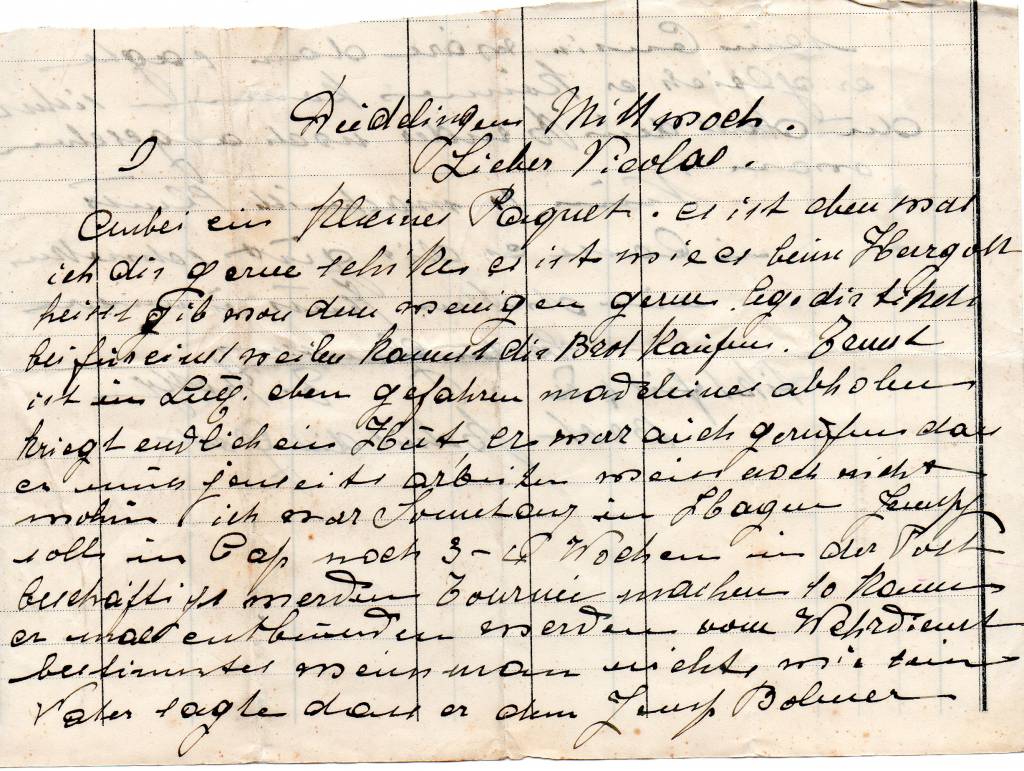 Dieddingen Mittwoch.
I Lieber Nicolas.
Anbei ein kleines Paquet. es ist eben was
ich dir gerne schike es ist wie es beim Herrgott
heist gib von dem wenigen gerne. lege dir tikets
bei für einstweilen kannst dir Brot kaufen. Ernest
ist in Lux. eben gefahren madeleines abholen
kriegt endlich ein Hut er war auch gerufen das
er muss jenseits arbeiten weis noch nicht
wohin ich war Sonntag in Hagen Jemp
solle in Cap noch 3-4 Wochen in der Post
beschäftigt werden Tournée machen so kann
er entbunden werden vom Wehrdienst
bestimmtes weis man nichts wie sein
Vater sagte dass er dem Jemp